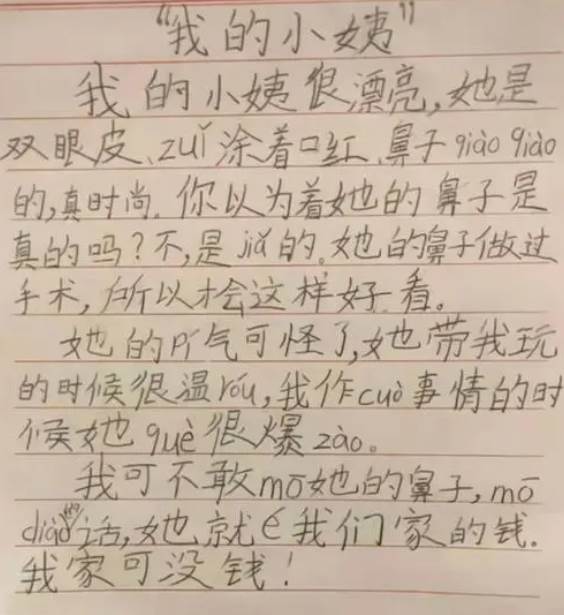 “我的小姨”
我的小姨很漂亮,她是
双眼皮、zuǐ涂着口红、鼻子qiào qiào
的,真时尚.你以为着她的鼻子是
真的吗?不,是jiǎ的。她的鼻子做过
手术,所以才会这样好看。
她的pí气可怪了,她带我玩
的时候很温róu,我作cuò事情的时
候她què很爆zào。
我可不敢mō她的鼻子,mō
diào话,她就é我们家的钱.
我家可没钱!